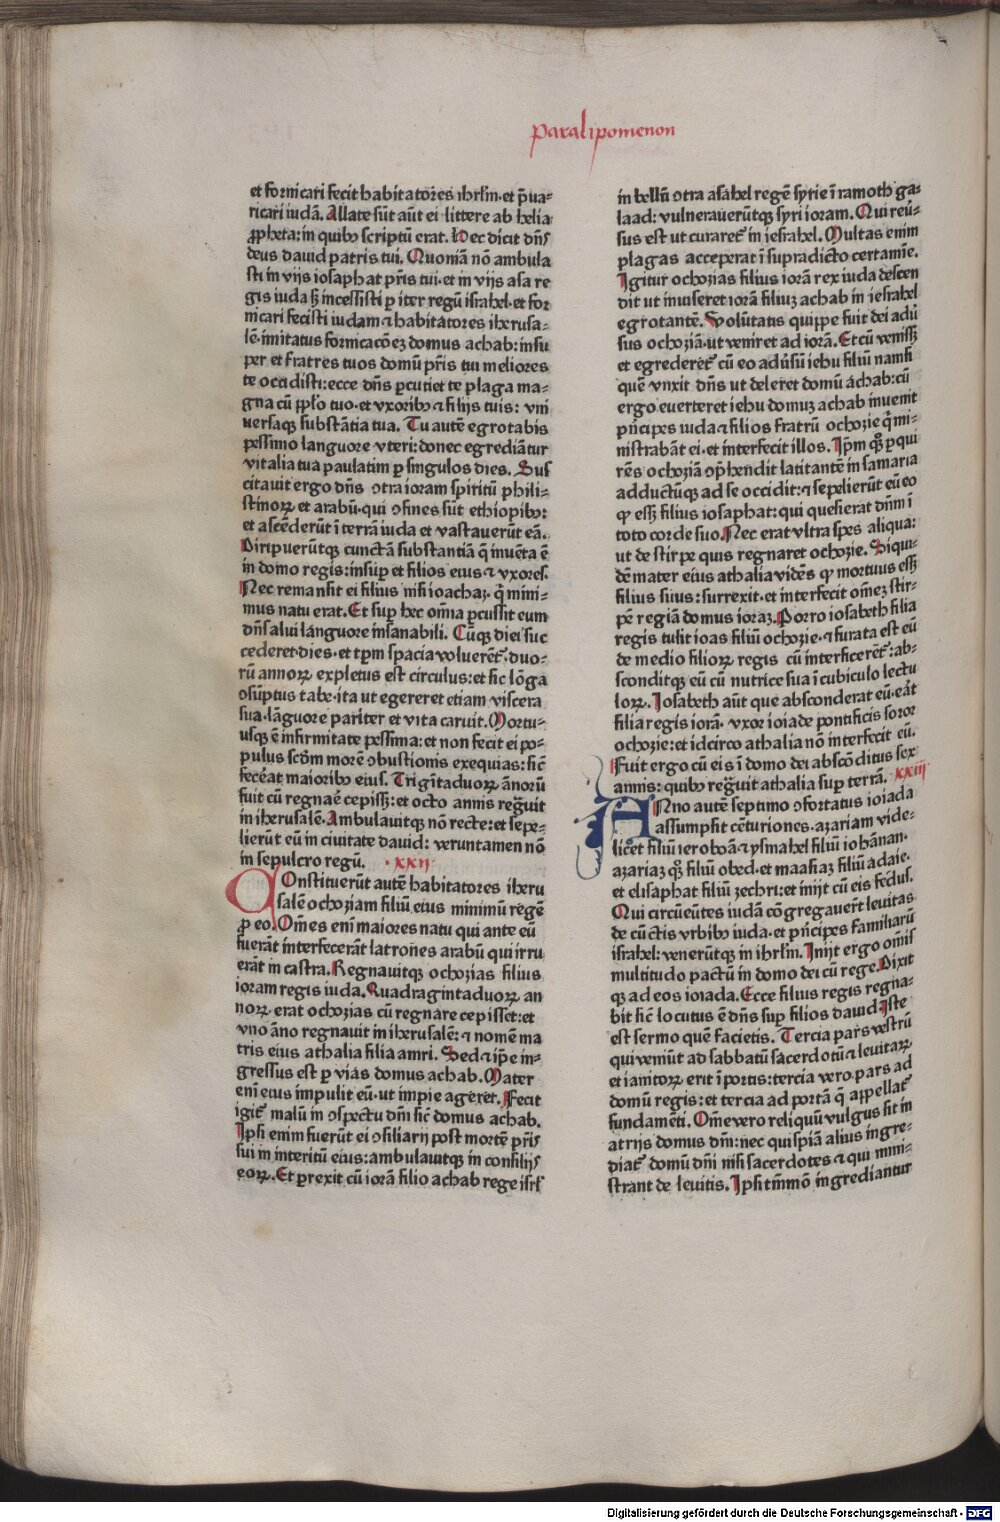 paralipomenon
et fornicari fecit habitatores ihrl̄m·et p̄ua⸗
ricari iudā. Allate sūt aūt ei littere ab helia
ꝓpheta:in quibꝰ scriptū erat. Hec dicit dn̄s
deus dauid patris tui. Quoniā nō ambula
sti in vijs iosaphat pr̄is tui·et in vijs asa re
gis iuda sꝫ incessisti ꝑ iter regū israhel·et for
nicari fecisti iudam ⁊ habitatores iherusa⸗
lē·imitatus fornicacōeꝫ domus achab:insu
per et fratres tuos domū pr̄is tui meliores
te occidisti:ecce dn̄s ꝑcutiet te plaga ma⸗
gna cū ppl̄o tuo·et vxoribꝰ ⁊ filijs tuis: vni
uersaqꝫ substātia tua. Tu autē egrotabis
pessimo languore vteri:donec egrediātur
vitalia tua paulatim ꝑ singulos dies. Sus
citauit ergo dn̄s ꝯtra ioram spiritū phili⸗
stinoꝝ et arabū·qui ꝯfines sūt ethiopibꝰ:
et ascēderūt ī terrā iuda et vastauerūt eā.
Diripuerūtqꝫ cunctā substantiā q̄ inuēta ē
in domo regis:insuꝑ et filios eius ⁊ vxores.
Nec remansit ei filius nisi ioachaꝫ·q̄ mini⸗
mus natu erat. Et suꝑ hec om̄ia ꝑcussit eum
dn̄s alui languore insanabili. Cūqꝫ diei suc
cederet dies·et tꝑm spacia voluerēt᷒·duo⸗
rū annoꝝ expletus est circulus:et sic lōga
ꝯsūptus tabe·ita ut egereret etiam viscera
sua·lāguore pariter et vita caruit. Mortu⸗
usqꝫ ē infirmitate pessima:et non fecit ei po⸗
pulus scd̄m morē ꝯbustionis exequias:sic̄
fecēat maioribꝰ eius. Trigītaduoꝝ ānorū
fuit cū regnaē cepissꝫ:et octo annis regn̄uit
in iherusalē. Ambulauitqꝫ nō recte:et sepe⸗
lierūt eū in ciuitate dauid: veruntamen nō
in sepulcro regū. ·xxij·
Constituerūt autē habitatores iheru
salē ochoziam filiū eius minimū regē
ꝓ eo. Om̄es enī maiores natu qui ante eū
fuerāt interfecerāt latrones arabū qui irru
erāt in castra. Regnauitqꝫ ochozias filius
ioram regis iuda. Quadragintaduoꝝ an
noꝝ erat ochozias cū regnare cepisset:et
vno āno regnauit in iherusalē: ⁊ nomē ma
tris eius athalia filia amri. Sed ⁊ ip̄e in⸗
gressus est ꝑ vias domus achab. Mater
enī eius impulit eū·ut impie ageret. Fecit
igit᷒ malū in ꝯspectu dn̄i sic̄ domus achab.
Ipsi enim fuerūt ei ꝯsiliarij post mortē pr̄is
sui in interitū eius:ambulauitqꝫ in consilijs
eoꝝ. Et ꝑrexit cū iorā filio achab rege isrl̄
in bellū ꝯtra asahel regē syrie ī ramoth ga⸗
laad: vulnerauerūtqꝫ syri ioram. Qui reū⸗
sus est ut curaret᷒ in iesrahel. Multas enim
plagas acceperat ī supradicto certamīe.
Igitur ochozias filius iorā rex iuda descen
dit ut inuiseret iorā filiuꝫ achab in iesrahel
egrotantē. Volūtatis quippe fuit dei adū
sus ochoziā·ut veniret ad iorā. Et cū venissꝫ
et egrederet᷒ cū eo adūsū iehu filiū namsi
quē vnxit dn̄s ut deleret domū achab:cū
ergo euerteret iehu domuꝫ achab inuenit
prīcipes iuda ⁊ filios fratrū ochozie q̄ mi⸗
nistrabāt ei·et interfecit illos. Ip̄m qꝫ ꝑqui
rēs ochoziā ꝯp̄hendit latitantē in samaria
adductūqꝫ ad se occidit:⁊ sepelierūt eū eo
ꝙ essꝫ filius iosaphat:qui quesierat dn̄m ī
toto corde suo. Nec erat vltra spes aliqua:
ut de stirpe quis regnaret ochozie. Siqui⸗
dē mater eius athalia vidēs ꝙ mortuus essꝫ
filius suus:surrexit·et interfecit om̄eꝫ stir⸗
pē regiā domus ioraꝫ. Porro iosabeth filia
regis tulit ioas filiū ochozie·⁊ furata est eū
de medio filioꝝ regis cū interficerēt᷒:ab⸗
sconditqꝫ eū cū nutrice sua ī cubiculo lectu
loꝝ. Iosabeth aūt que absconderat eū·eāt
filia regis iorā· vxor ioiade pontificis soror
ochozie:et idcirco athalia nō interfecit eū.
Fuit ergo cū eis ī domo dei abscōditus sex
annis: quibꝰ regn̄uit athalia suꝑ terrā. ·xxiij·
Anno autē septimo ꝯfortatus ioiada
assumpsit cēturiones·azariam vide⸗
licet filiū ieroboā ⁊ ysmahel filiū iohānan·
azariaꝫ qꝫ filiū obed·et maasiaꝫ filiū adaie·
et elisaphat filiū zechri:et inijt cū eis fedus.
Qui circūeūtes iudā cōgregauer̄t leuitas
de cūctis vrbibꝰ iuda·et pn̄cipes familiarū
israhel: venerūtqꝫ in ihrl̄m. Inijt ergo om̄is
multitudo pactū in domo dei cū rege. Dixit
qꝫ ad eos ioiada. Ecce filius regis regna⸗
bit sic̄ locutus ē dn̄s suꝑ filios dauid Iste
est sermo quē facietis. Tercia pars vestrū
qui veniūt ad sabbatū sacerdotū ⁊ leuitaꝝ
et ianitoꝝ erit ī portis:tercia vero pars ad
domū regis:et tercia ad portā q̄ appellat᷒
fundamēti. Om̄e vero reliquū vulgus sit in
atrijs domus dn̄i:nec quispiā alius ingre⸗
diat᷒ domū dn̄i nisi sacerdotes ⁊ qui mini⸗
strant de leuitis. Ipsi tm̄mō ingrediantur
Digitalisierung gefördert durch die Deutsche Forschungsgemeinschaft - DFG